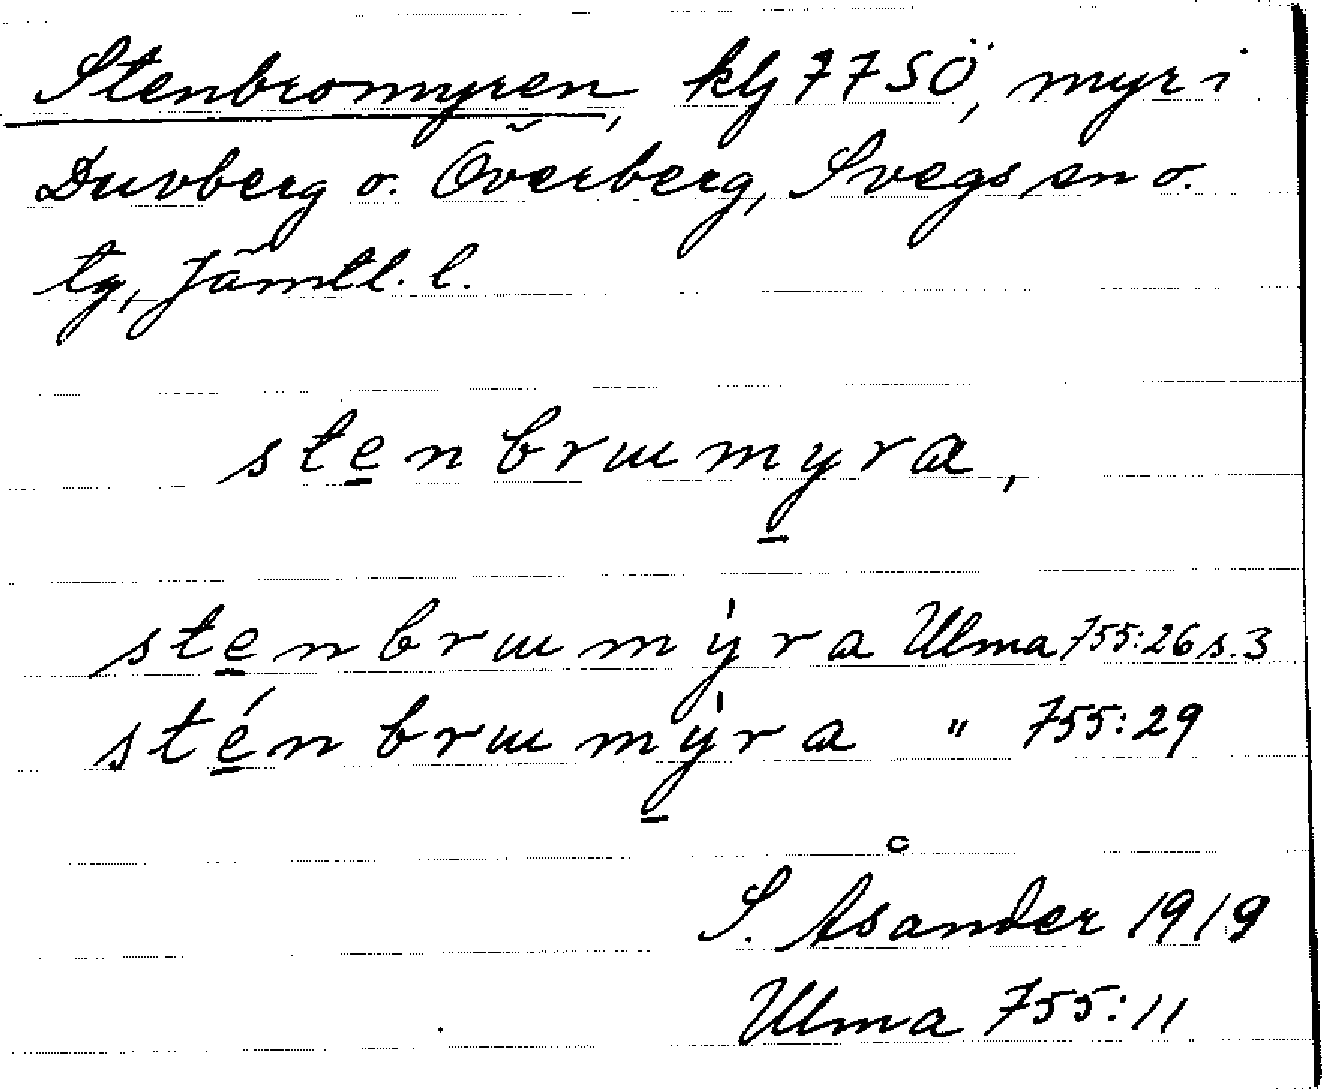 Stenbromyren, klj 77 SÖ, myr i
Duvberg o. Överberg, Svegs sn o.
tg, Jämtl. l.
ste̲nbrɯmy̲ra,
ste̲nbrɯmy̍ra Ulma 755:26 s. 3
sté̲nbrɯmy̲̍ra " 755:29
S. Åsander 1919
Ulma 755:11